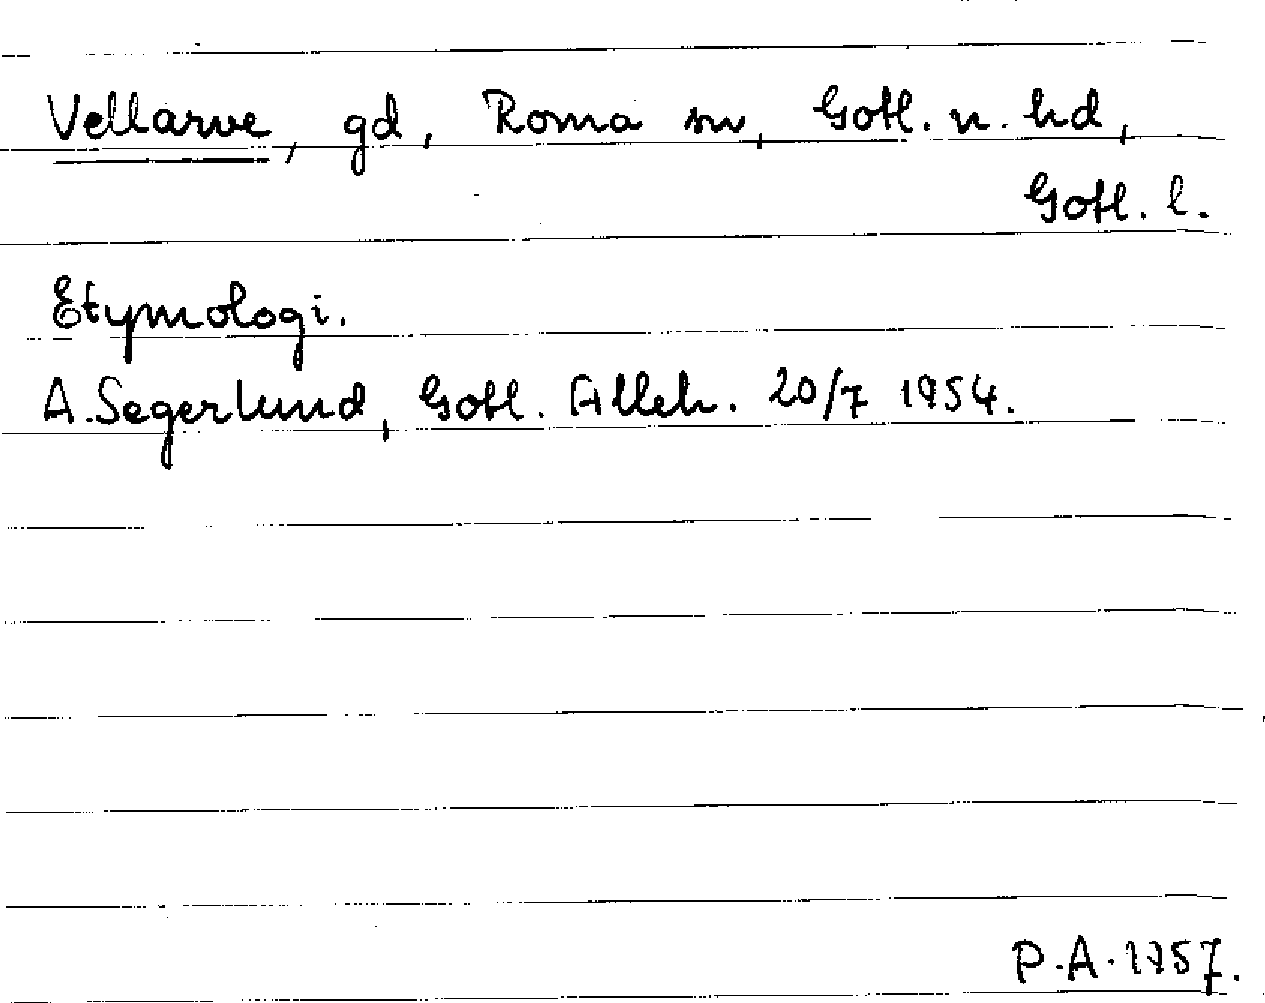 Vellarve, gd, Roma sn, Gotl. n. hd,
Gotl. l.
Etymologi.
A. Segerlund, Gotl. Alleh. 20/7 1954.
P.A. 1957.